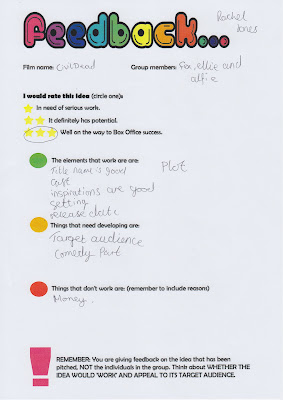 Feedback...
Rachel
Jones
Film name: CivilDead
Group members: Fox, ellie and
alfie
I would rate this idea (circle one):
In need of serious work.
It definitely has potential.
Well on the way to Box Office success.
The elements that work are:
Title name is good
Plot
Cast
inspirations are good
setting
release date
Things that need developing are:
Target audience
Comedy Part
Things that don't work are: (remember to include reasons)
Money.
REMEMBER: You are giving feedback on the idea that has been
pitched, NOT the individuals in the group. Think about WHETHER THE
IDEA WOULD 'WORK' AND APPEAL TO ITS TARGET AUDIENCE.